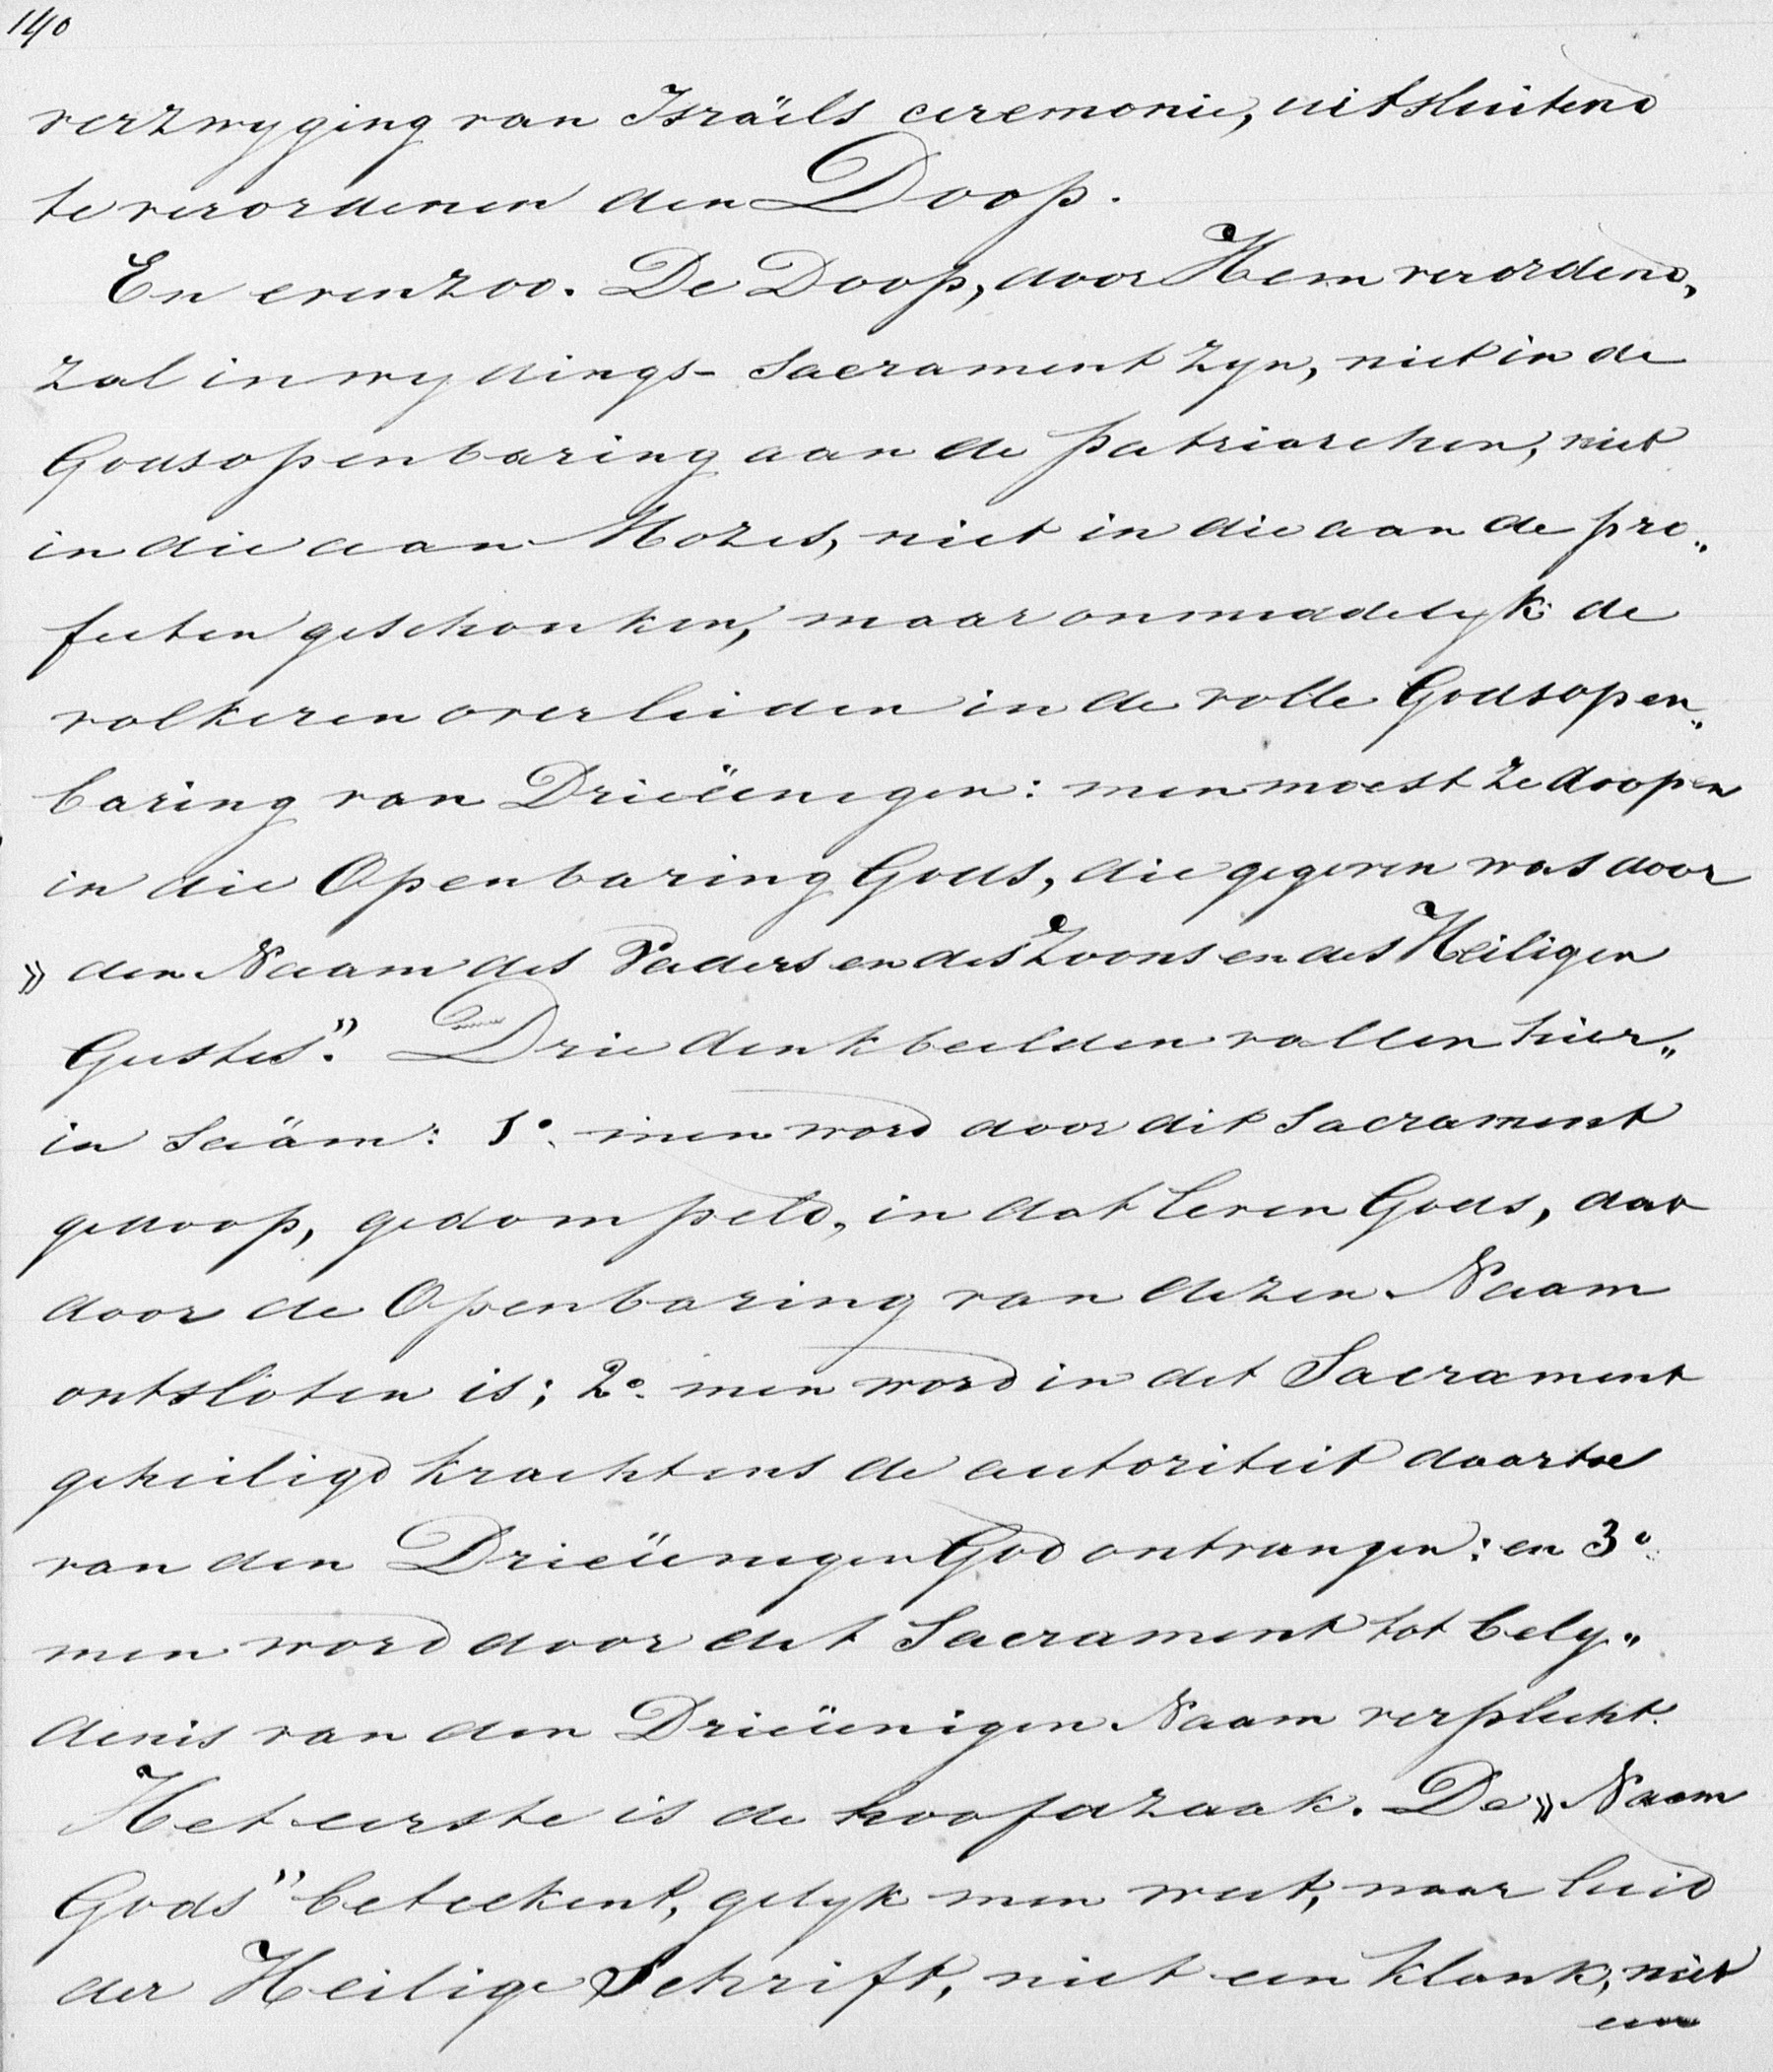 140
verzwyging van Israëls ceremonie, uitsluitend
te verordenen den Doop.
En evenzoo. De Doop, door Hem verordend,
zal inwydings- Sacrament zyn, niet in de
Godsopenbaring aan de patriarchen, niet
in die aan Mozes, niet in die aan de pro„
feeten geschonken, maar onmiddelyk de
volkeren overleiden in de volle Godsopen„
baring van Drieëenigen: men moest ze doopen
in die Openbaring Gods, die gegeven was door
» den Naam des Vaders en des Zoons en des Heiligen
Geestes”. Drie denkbeelden vallen hier„
in saäm: 1o. men word door dit Sacrament
gedoop, gedompeld, in dat leven Gods, dat
door de Openbaring van dezen Naam
ontsloten is; 2o. men word in dit Sacrament
geheiligd krachtens de autoriteit daartoe
van den Drieëenigen God ontvangen: en 3o.
men word door dit Sacrament tot bely„
denis van den Drieëenigen Naam verplicht.
Het eerste is de hoofdzaak. De » Naam
Gods” beteekent, gelyk men weet, naar luid
der Heilige Schrift, niet een klank, niet
een